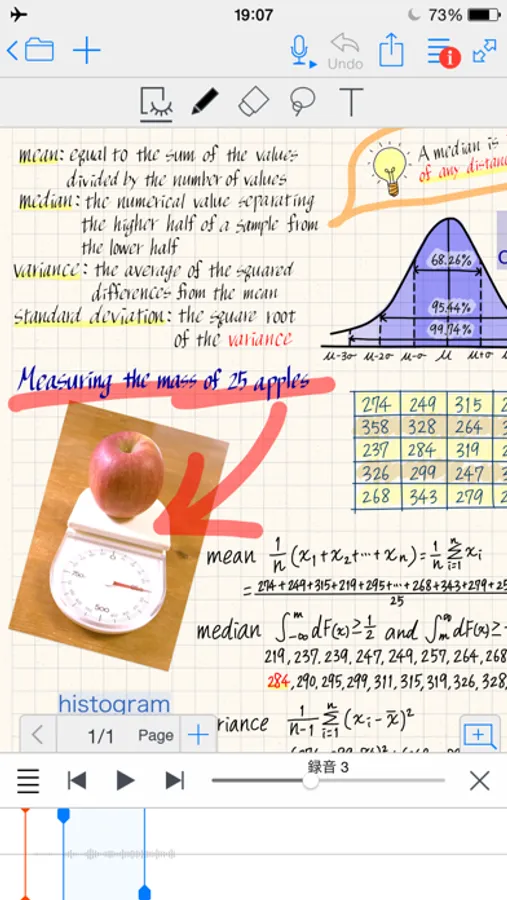 19:07
73%
Undo
i
T
mean: equal to the sum of the values
divided by the number of values
median: the numerical value separating
the higher half of a sample from
the lower half
variance: the average of the squared
differences from the mean
standard deviation: the square root
of the variance
A median is
of any distan
68.26%
95.44%
99.74%
μ-3σ μ-2σ μ-σ μ μ+σ
Measuring the mass of 25 apples
274 249 315
358 328 264
237 284 319
326 299 247
268 343 279
0
750
500
mean 1/n (x₁+x₂+…+xₙ)=1/n Σ i=1 n xᵢ
= 274+249+315+219+295+…+268+343+299+25
25
median ∫-∞ m dF(x)≥1/2 and ∫m ∞ dF(x)≥
219, 237, 239, 247, 249, 257, 264, 268
284, 290, 295, 299, 311, 315, 319, 326, 328,
histogram
riance 1/n-1 Σ i=1 n (xᵢ-x̄)²
1/1 Page
録音 3